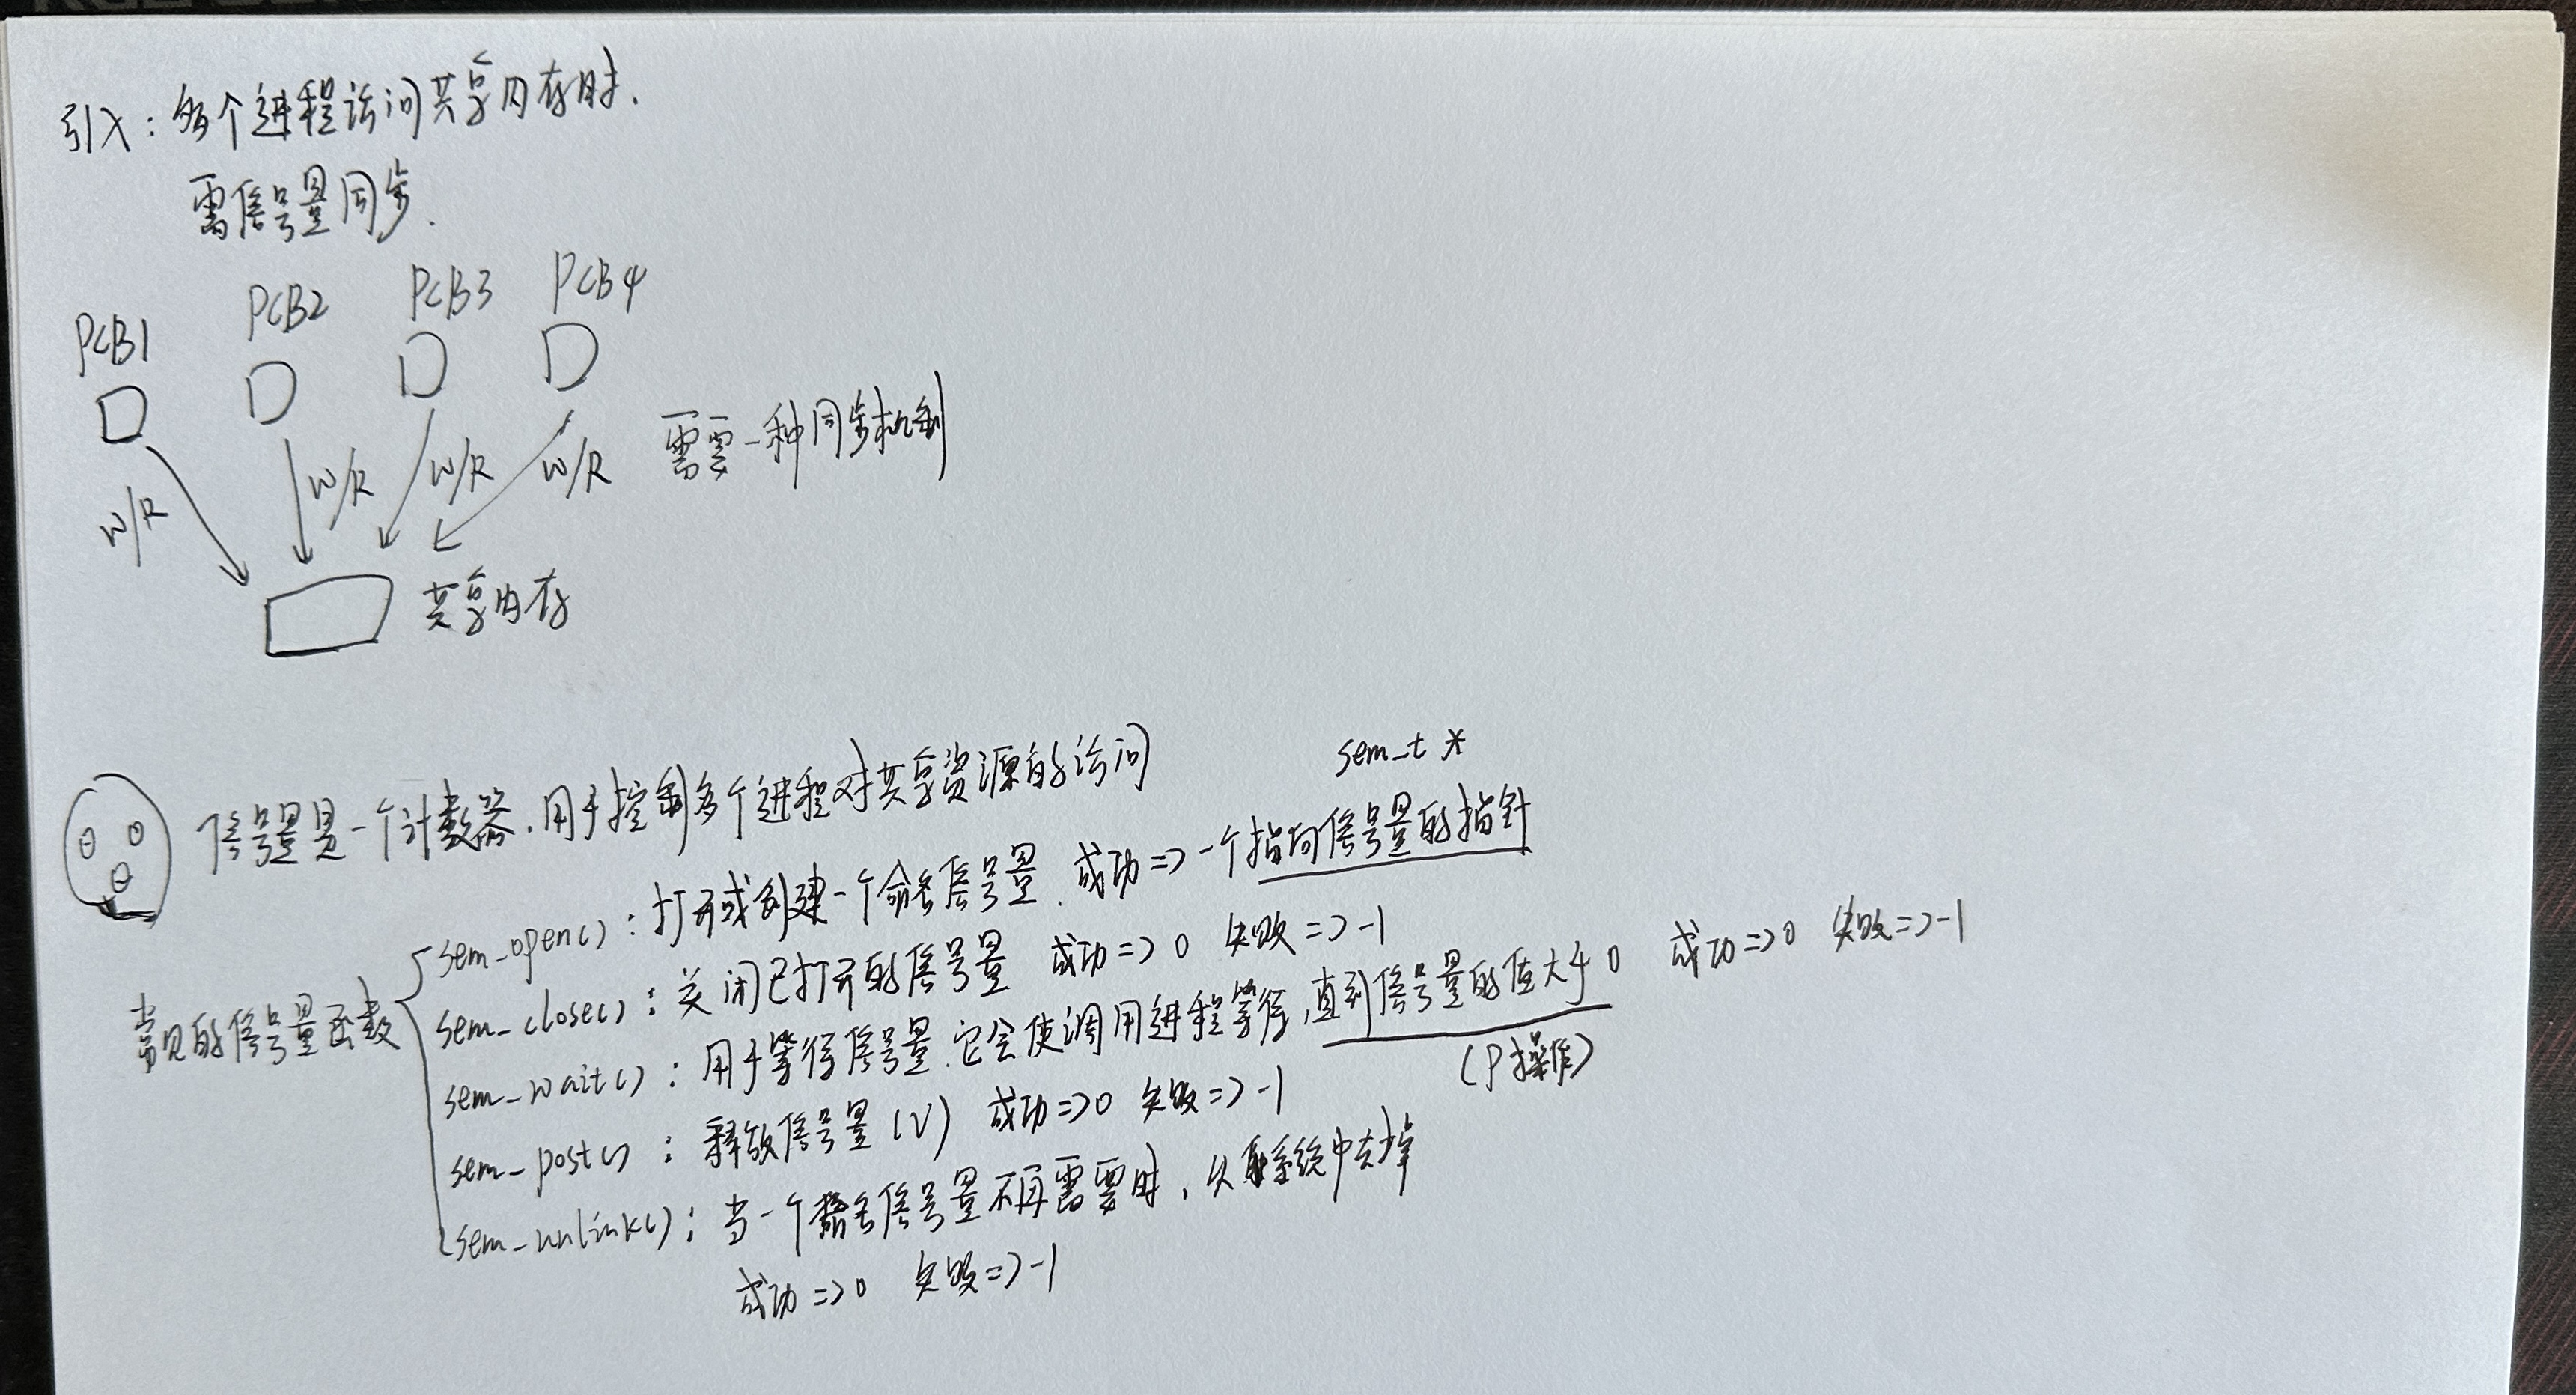 引入：多个进程访问共享内存时.
需信号量同步.
PCB1 PCB2 PCB3 PCB4
W/R W/R W/R W/R 需要一种同步机制
共享内存
信号量是一个计数器.用于控制多个进程对共享资源的访问
sem_t *
常见的信号量函数
sem_open()：打开或创建一个命名信号量. 成功=>一个指向信号量的指针
sem_close()：关闭已打开的信号量 成功=>0 失败=>-1
sem_wait()：用于等待信号量.它会使调用进程等待,直到信号量的值大于0 成功=>0 失败=>-1
(P操作)
sem_post()：释放信号量(V) 成功=>0 失败=>-1
sem_unlink()：当一个命名信号量不再需要时，从系统中去掉
成功=>0 失败=>-1